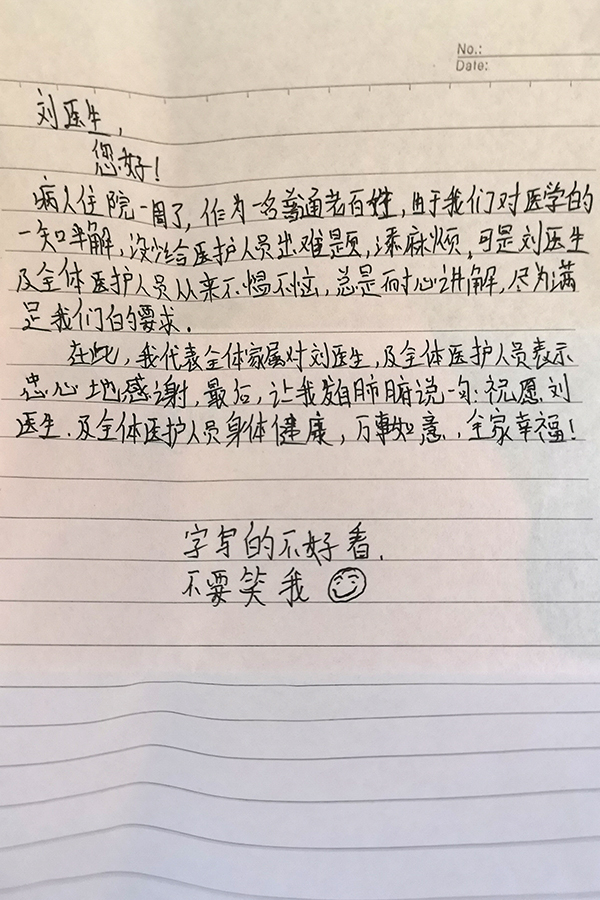 No.:
Date:
刘医生,
您好!
病人住院一周了,作为一名普通老百姓,由于我们对医学的
一知半解,没少给医护人员出难题,添麻烦,可是刘医生
及全体医护人员从来不愠不恼,总是耐心讲解,尽为满
足我们的要求.
在此,我代表全体家属对刘医生,及全体医护人员表示
忠心地感谢,最后,让我发自肺腑说一句:祝愿刘
医生.及全体医护人员身体健康,万事如意,全家幸福!
字写的不好看.
不要笑我